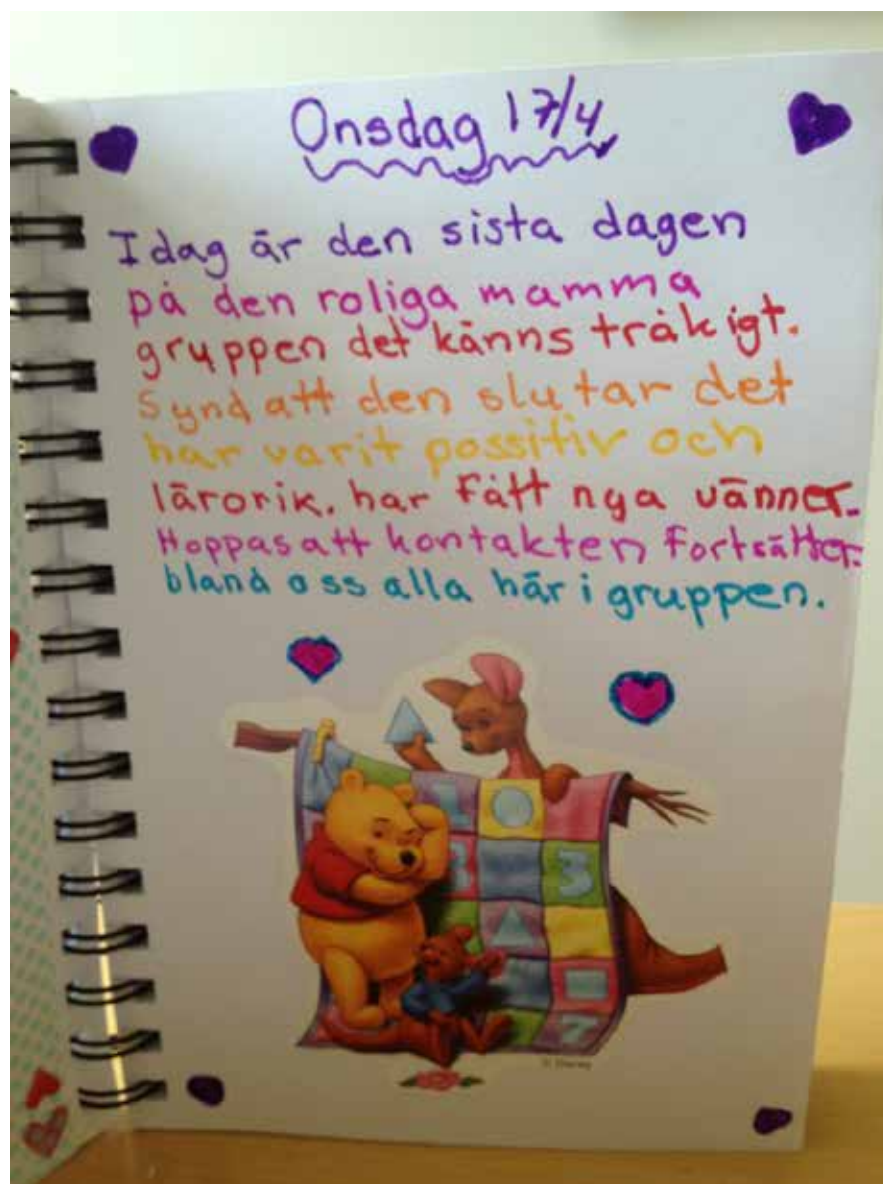 Onsdag 17/4
Idag är den sista dagen
på den roliga mamma
gruppen det känns tråkigt.
Synd att den slutar det
har varit possitiv och
lärorik. har fått nya vänner.
Hoppas att kontakten fortsätter.
bland oss alla här i gruppen.
3
7
© Disney